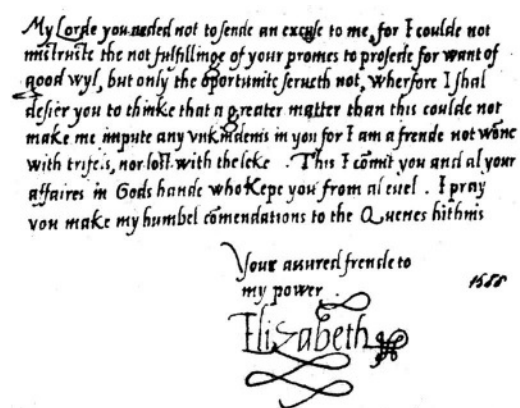 My Lorde you neded not to sende an excuse to me, for I coulde not
mistruste the not fulfillinge of your promes to prosede for want of
good wyl, but only the oportunite serueth not, wherfore I shal
desier you to thinke that a greater matter than this coulde not
make me impute any vnkindenis in you for I am a frende not wone
with trifels, nor lost with the leke . This I cõmit you and al your
affaires in Gods hande who kepe you from al euel . I pray
you make my humbel cõmendations to the Quenes hithnis
Your assured frende to
my power
Elizabeth